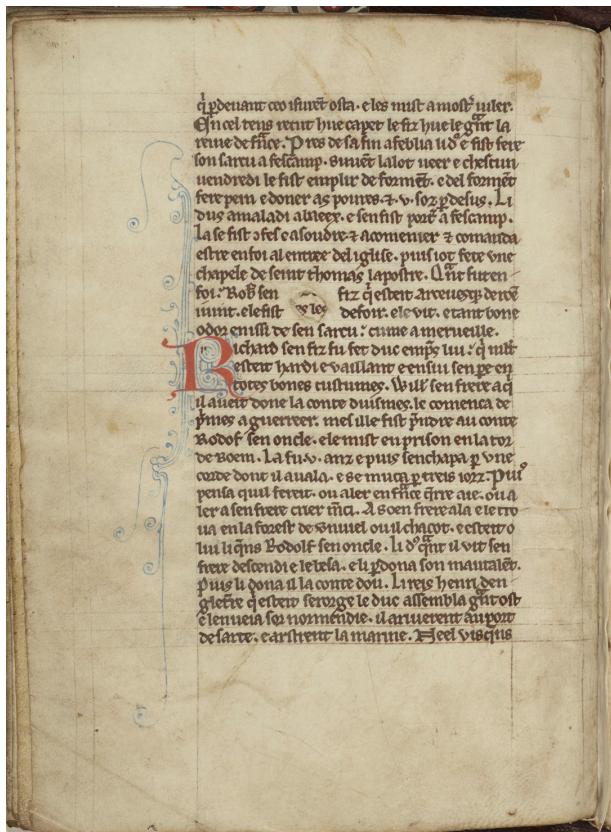 q̃ ꝑdevant ceo ifurẽt osta. e les mist a most̃ viler.
En cel tens recut hue capet le fiz hue le g̃nt la
reiue de fñce. Pres de sa fin afeblia li dꝰ e fist fere
son sarcu a fescamp. suuẽt lalot ueer e chescun
uendredi le fist emplir de formẽt. e del formẽt
fere pein e doner as poures. ⁊ .v. soz ꝑdesus. Li
dus amaladi abaeex. e sen fist port̃ a fescamp.
La se fist ɔfes e asoudre ⁊ acomenier ⁊ comanda
estre enfoi al entree del iglise. puis iot fete vne
chapele de seint thomas lapostre. Q̃nt fut en
foi: Rob̃ sen fiz q̃ esteit arceuesq̃ de roẽ
iuint. ele fist es les defoir. ele vit. e tant bone
odor en issi de sen sarcu: cume a merueille.
Richard sen fiz fu fet duc emp̃s lui: q̃ mlt̃
esteit hardi e vaillant e ensui sen pe en
totes bones custumes. Will̃ sen frere a q̃
il aueit done la conte duismes. le comenca de
p̃mes a guerreer. mes il le fist p̃ndre au conte
Rodolf sen oncle. ele mist en prison en la tor
de Roem. La fu .v. anz e puis senchapa ꝑ vne
corde dont il auala. e se muca ꝑ treis iorz. Puiꝰ
pensa quil fereit. ou aler en fñce q̃rre aie. ou a
ler a sen frere crier m̃ci. A soen frere ala e le tro
ua en la forest de vnuiel ou il chacot. e esteit o
lui li q̃ns Rodolf sen oncle. li dꝰ q̃nt il vit sen
frere descendi e le besa. e li ꝑdona son mautalẽt.
Puis li dona il la conte dou. Li reis henri den
glet̃re q̃ esteit serorge le duc assembla g̃nt ost
e lenueia sor normendie. il ariuerent au port
de sarte. e arstrent la marine. Neel visq̃ns